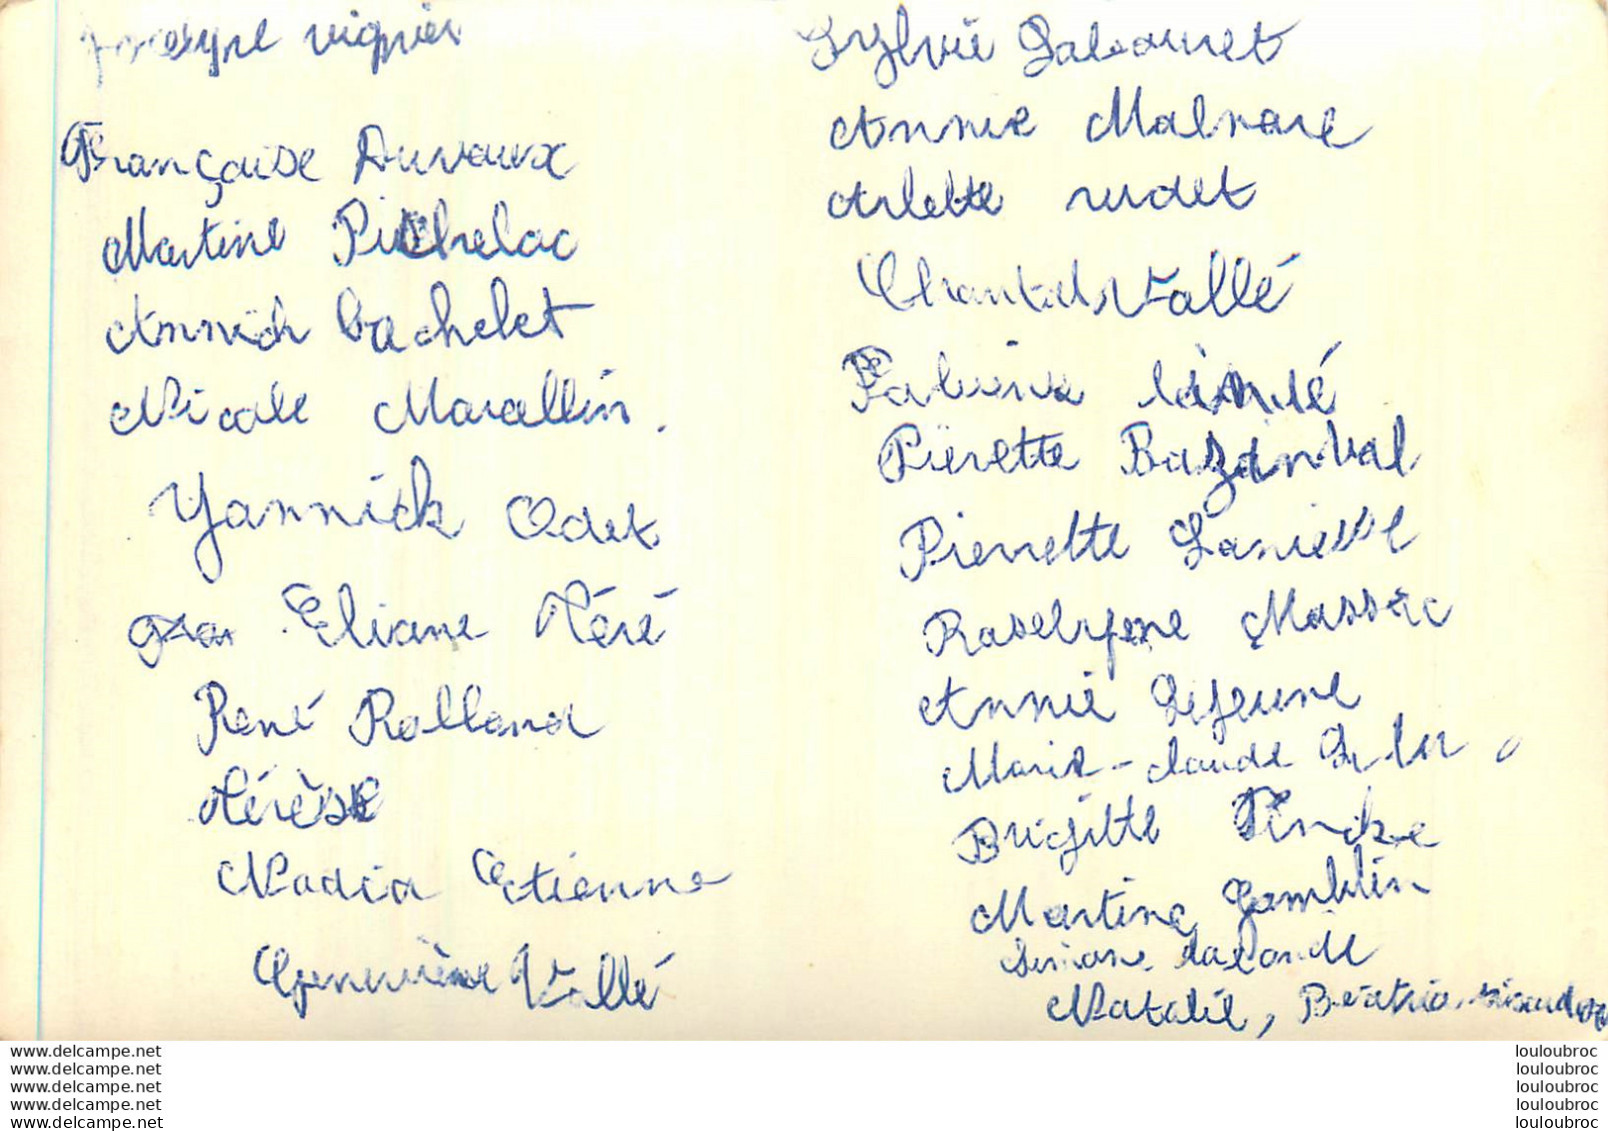 Jocelyne vignier
Françoise Duvaux
Martine Pichelac
Annick Bachelet
Nicole Marcellin.
Yannick Odet
Eliane Néré
René Rolland
Nérèse
Nadia Etienne
Geneviève Vallé
Sylvie Labouret
Annie Malnare
Arlette rudet
Chantal Vallé
Fabiene
Pierette Bazinval
Pierrette
Roselyene Massic
Annie Lejeune
Marie-claude
Brigitte Fincke
Martine Gamblin
Simone Lalande
Natalie, Béatrice
www.delcampe.net
www.delcampe.net
www.delcampe.net
www.delcampe.net
www.delcampe.net
louloubroc
louloubroc
louloubroc
louloubroc
louloubroc